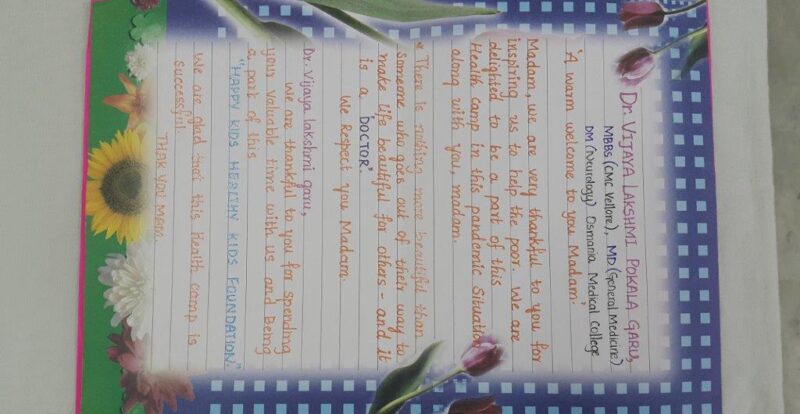 Dr. VIJAYA LAKSHMI POKALA GARU,
MBBS (CMC Vellore), MD (General Medicine)
DM (Neurology) Osmania Medical College
'A warm welcome to you Madam.'
Madam, we are very thankful to you for
inspiring us to help the poor. We are
delighted to be a part of this
Health camp in this pandemic Situation
along with you, madam.
* There is nothing more beautiful than
someone who goes out of their way to
make life beautiful for others - and it
is a 'DOCTOR'.
We Respect you Madam.
Dr. Vijaya lakshmi garu,
We are thankful to you for spending
your valuable time with us and Being
a part of this
"HAPPY KIDS HEALTHY KIDS FOUNDATION."
We are glad that this Health camp is
Successful!.
Thank you Mam.